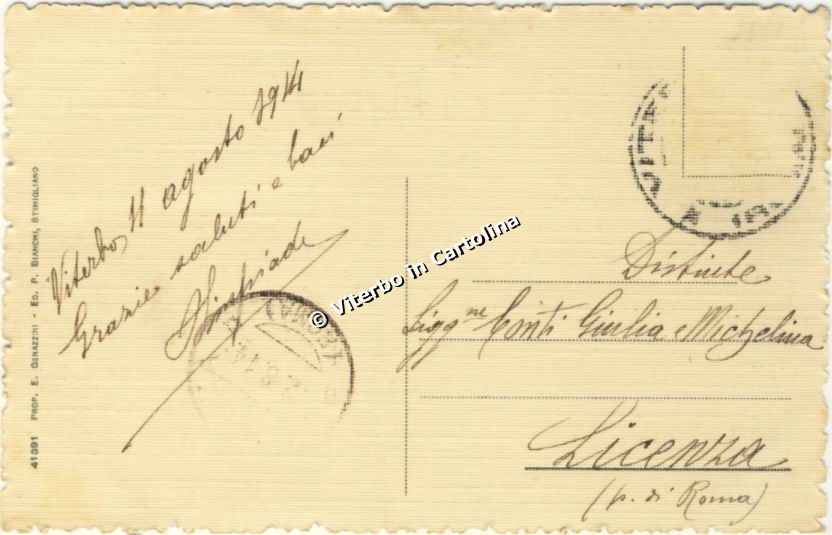 Viterbo, 11 agosto 1914
Grazie saluti e baci
Olimpiade
41391 PROP. E. GENAZZINI - ED. P. BIANCHI, STIMIGLIANO
© Viterbo in Cartolina
VITE
Distinte
Sigg.ne Conti Giulia e Michelina
Licenza
(p. di Roma)